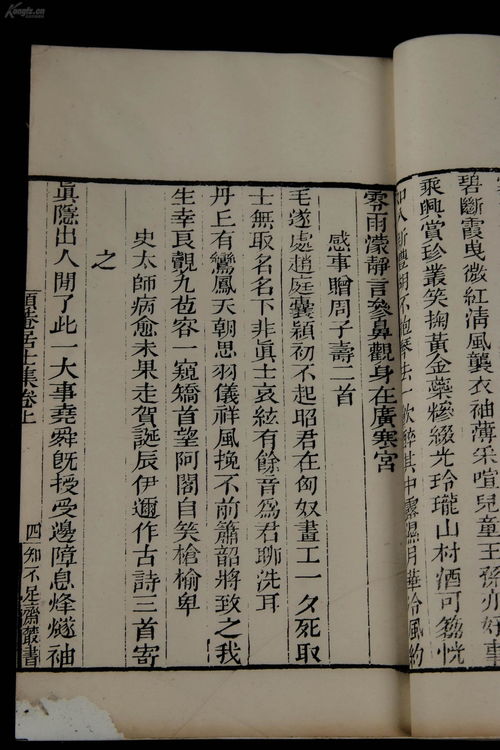 碧斷霞曳微紅清風襲衣袖薄采喧兒童王孫亦好事
乘興賞珍叢笑掬黃金蘂糝綴光玲瓏山村酒可芻恍
其中露濕月華冷風約
零雨濛靜言參鼻觀身在廣寒宮
感事贈周子壽二首
毛遂處趙庭囊穎初不起昭君在匈奴畫工一夕死取
士無取名名下非眞士哀絃有餘音爲君聊洗耳
丹丘有鸞鳳天朝思羽儀祥風挽不前簫韶將致之我
生幸良覿九苞容一窺矯首望阿閣自笑槍榆卑
史太師病愈未果走賀誕辰伊邇作古詩三首寄
之
眞隱出人閒了此一大事堯舜旣授受邊障息烽燧袖
頤菴居士集卷上
四
知不足齋叢書
Kongfz.cn